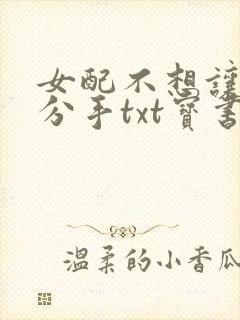 女配不想让
分手txt宝书
温柔的小香瓜